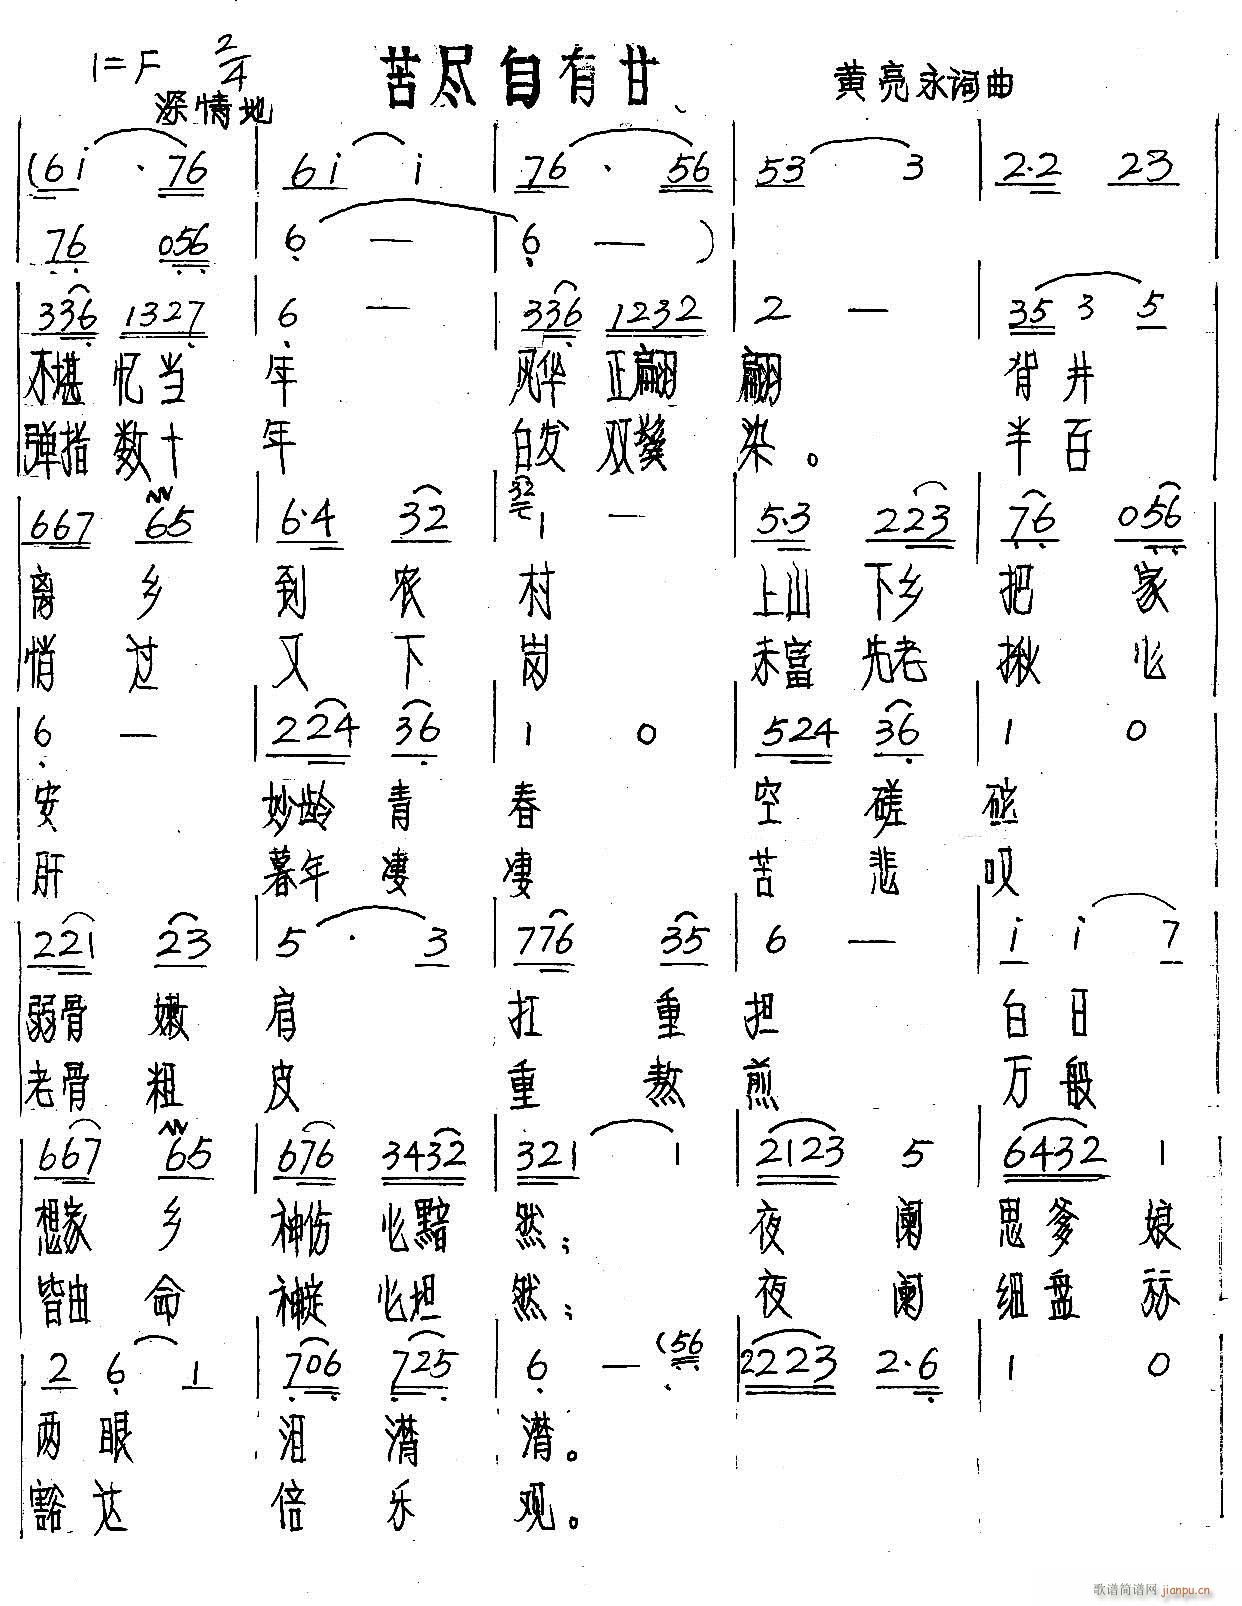 1=F 2/4 苦尽自有甘 黄亮永词曲
深情地
(6i·76 6i i 76·56 53 3 2·2 23
76 056 6 — 6 — )
336 1327 6 — 336 1232 2 — 35 3 5
不堪忆当年 风华正翩翩 背井
弹指数十年 白发双鬓染。 半百
667 65 6·4 32 32 1 — 5·3 223 76 056
离乡到农村 上山下乡把家
悄过又下岗 未富先老揪心
6 — 224 36 1 0 524 36 1 0
安 妙龄青春 空磋
肝 暮年凄凄 苦悲叹
221 23 5·3 776 35 6 — i i 7
弱骨嫩肩 扛重担 白日
老骨粗皮 重熬煎 万般
667 65 676 3432 321 1 2123 5 6432 1
想家乡 神伤心黯然; 夜阑思爹娘
皆由命 神定心坦然; 夜阑细盘
2 6 1 706 725 6 — (56 22223 2·6 1 0
两眼泪潸潸。
豁达倍乐观。
歌谱简谱网 jianpu.cn